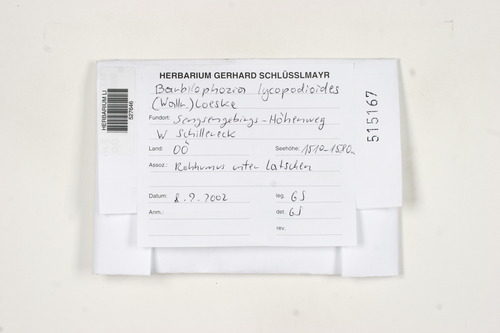 HERBARIUM GERHARD SCHLÜSSLMAYR
Barbilophozia lycopodioides
(Wallr.) Loeske
Fundort: Sengsengebirgs-Höhenweg
W Schillereck
Land: OÖ Seehöhe: 1510-1580m
Assoz.: Rohhumus unter Latschen
Datum: 8.9.2002 leg. GS
Anm.: det. GS
rev.
HERBARIUM LI
527646
515167